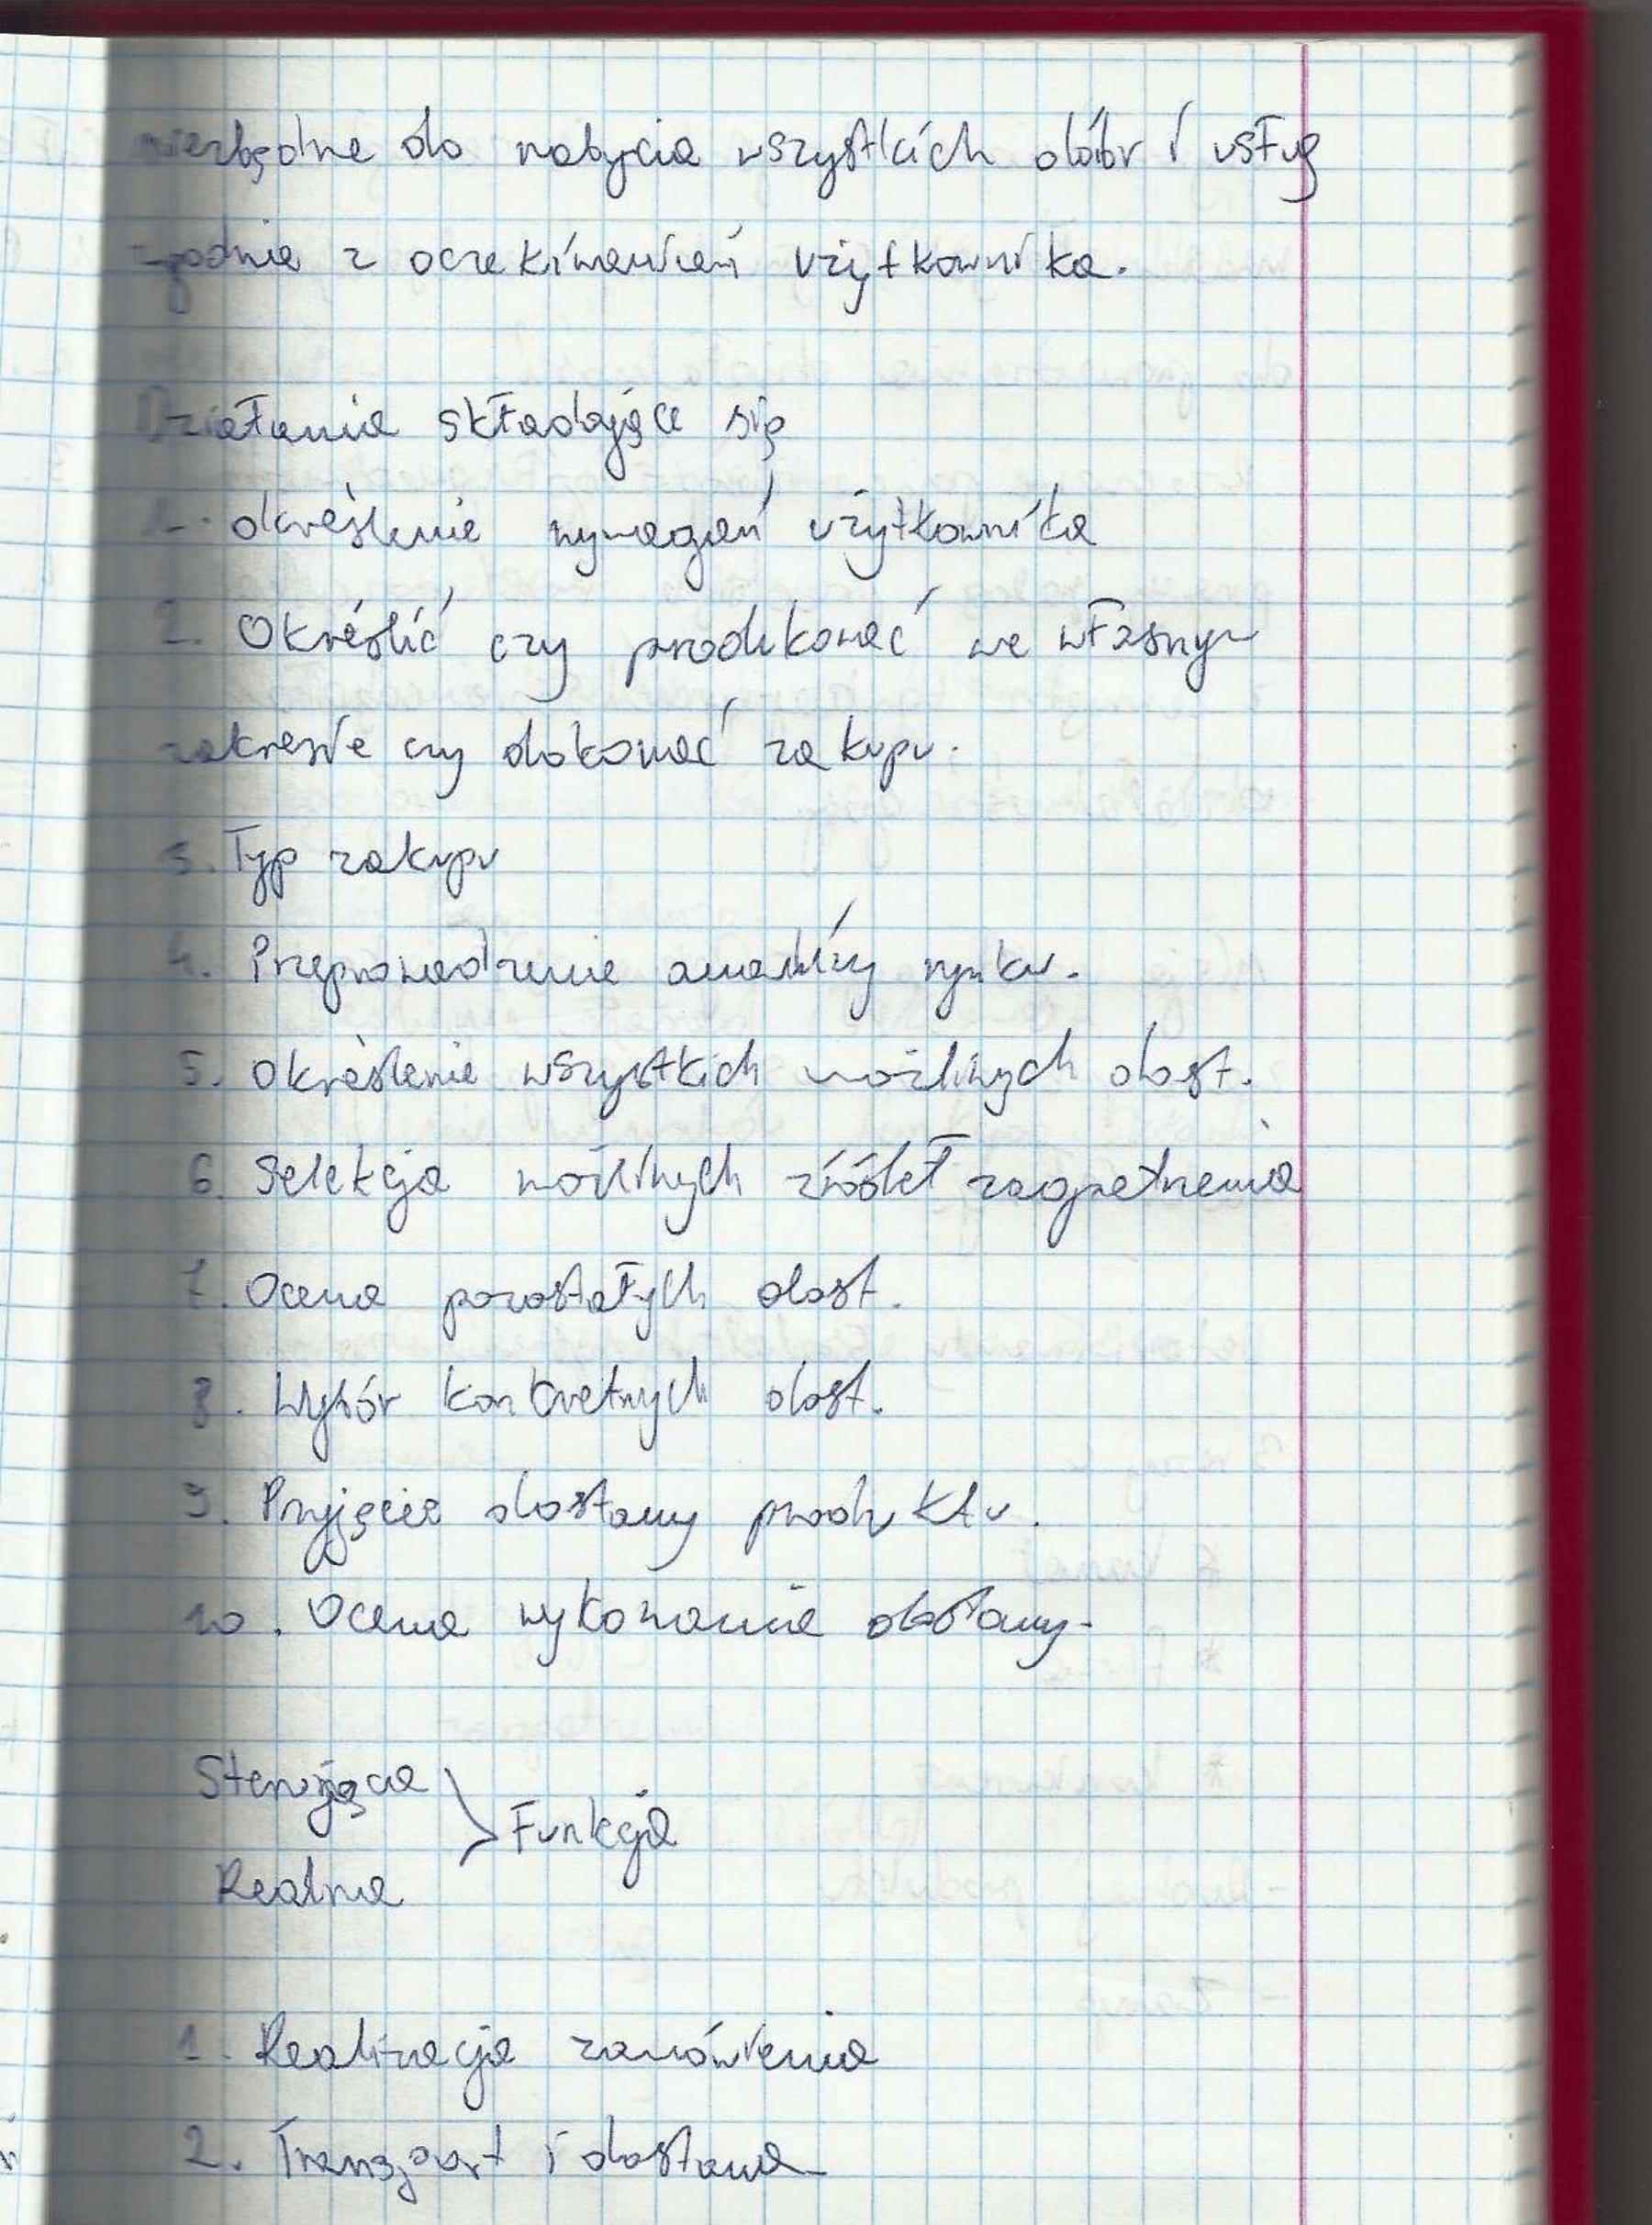 niezbędne do nabycia wszystkich dóbr i usług
zgodnie z oczekiwaniem użytkownika.
Działania składające się
1. określenie wymagań użytkownika
2. Określić czy produkować we własnym
zakresie czy dokonać zakupu.
3. Typ zakupu
4. Przeprowadzenie analizy rynku.
5. Określenie wszystkich możliwych dost.
6. Selekcja możliwych źródeł zaopatrzenia
7. Ocena pozostałych dost.
8. Wybór konkretnych dost.
9. Przyjęcie dostawy produktu.
10. Ocena wykonania dostawy.
Sterująca
Funkcja
Realna
1. Realizacja zamówienia
2. Transport i dostawa